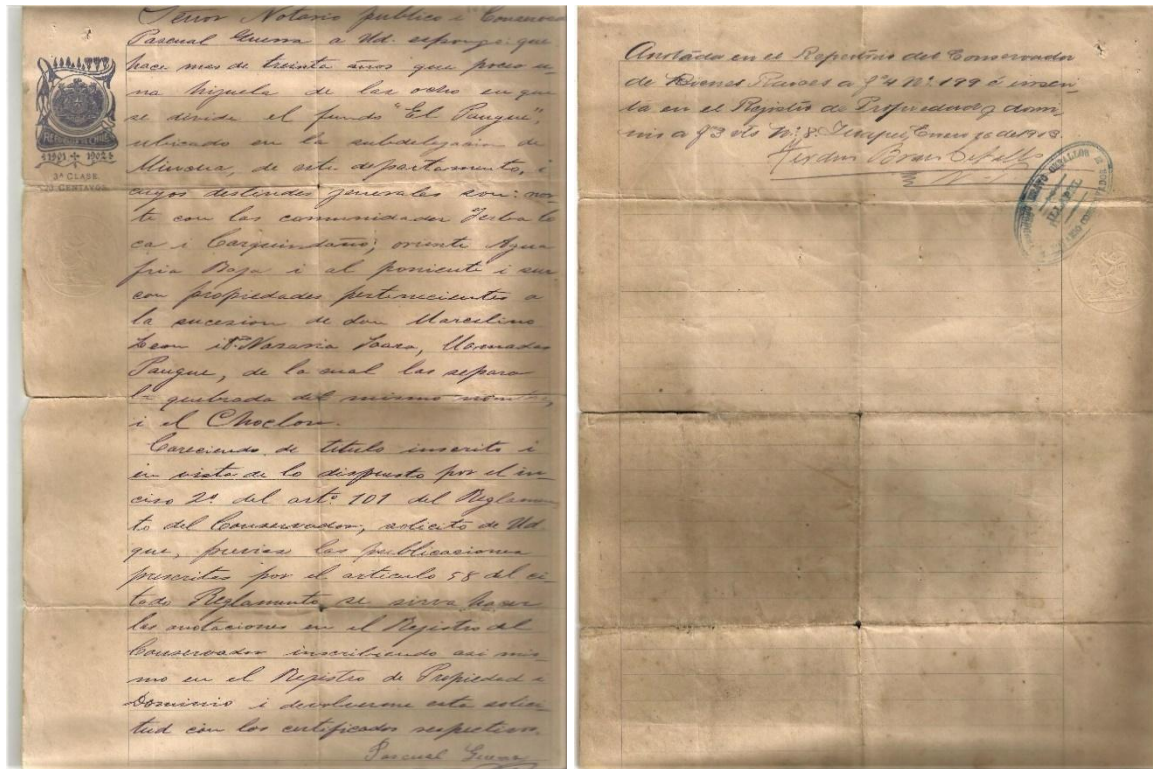 Señor Notario publico i Conservad
Pascual Guerra a Ud. espongo: que
hace mas de treinta años que poseo u-
na hijuela de las ocho en que
se divide el fundo "El Pangue",
ubicado en la subdelegacion de
Mincha, de este departamento, i
cuyos deslindes generales son: nor-
te con las comunidades Yerba lo
ca i Carquindaño; oriente Agua
fria Baja i al poniente i sur
con propiedades pertenecientes a
la sucesion de don Marcelino
Leon i Da. Nazaria Loasa, llamadas
Pangue, de la cual las separa
la quebrada del mismo nombre,
i el Choclon.
Careciendo de titulo inscrito i
en vista de lo dispuesto por el in-
ciso 2º del artº 101 del Reglamen
to del Conservador, solicito de Ud.
que, previas las publicaciones
prescritas por el articulo 58 del ci-
tado Reglamento se sirva hacer
las anotaciones en el Registro del
Conservador inscribiendo asi mis-
mo en el Registro de Propiedad i
Dominio i devolverme esta solici-
tud con los certificados respectivos.
Pascual Guerra
REPUBLICA DE CHILE
1901 1902
3ª CLASE
20 CENTAVOS
Anotada en el Repertorio del Conservador
de Bienes Raices a f 4 Nº 199 é inscri-
ta en el Registro de Propiedad y domi-
nio a f 3 vta Nº 8. Illapel, Enero 26 de 1903.
ILLAPEL